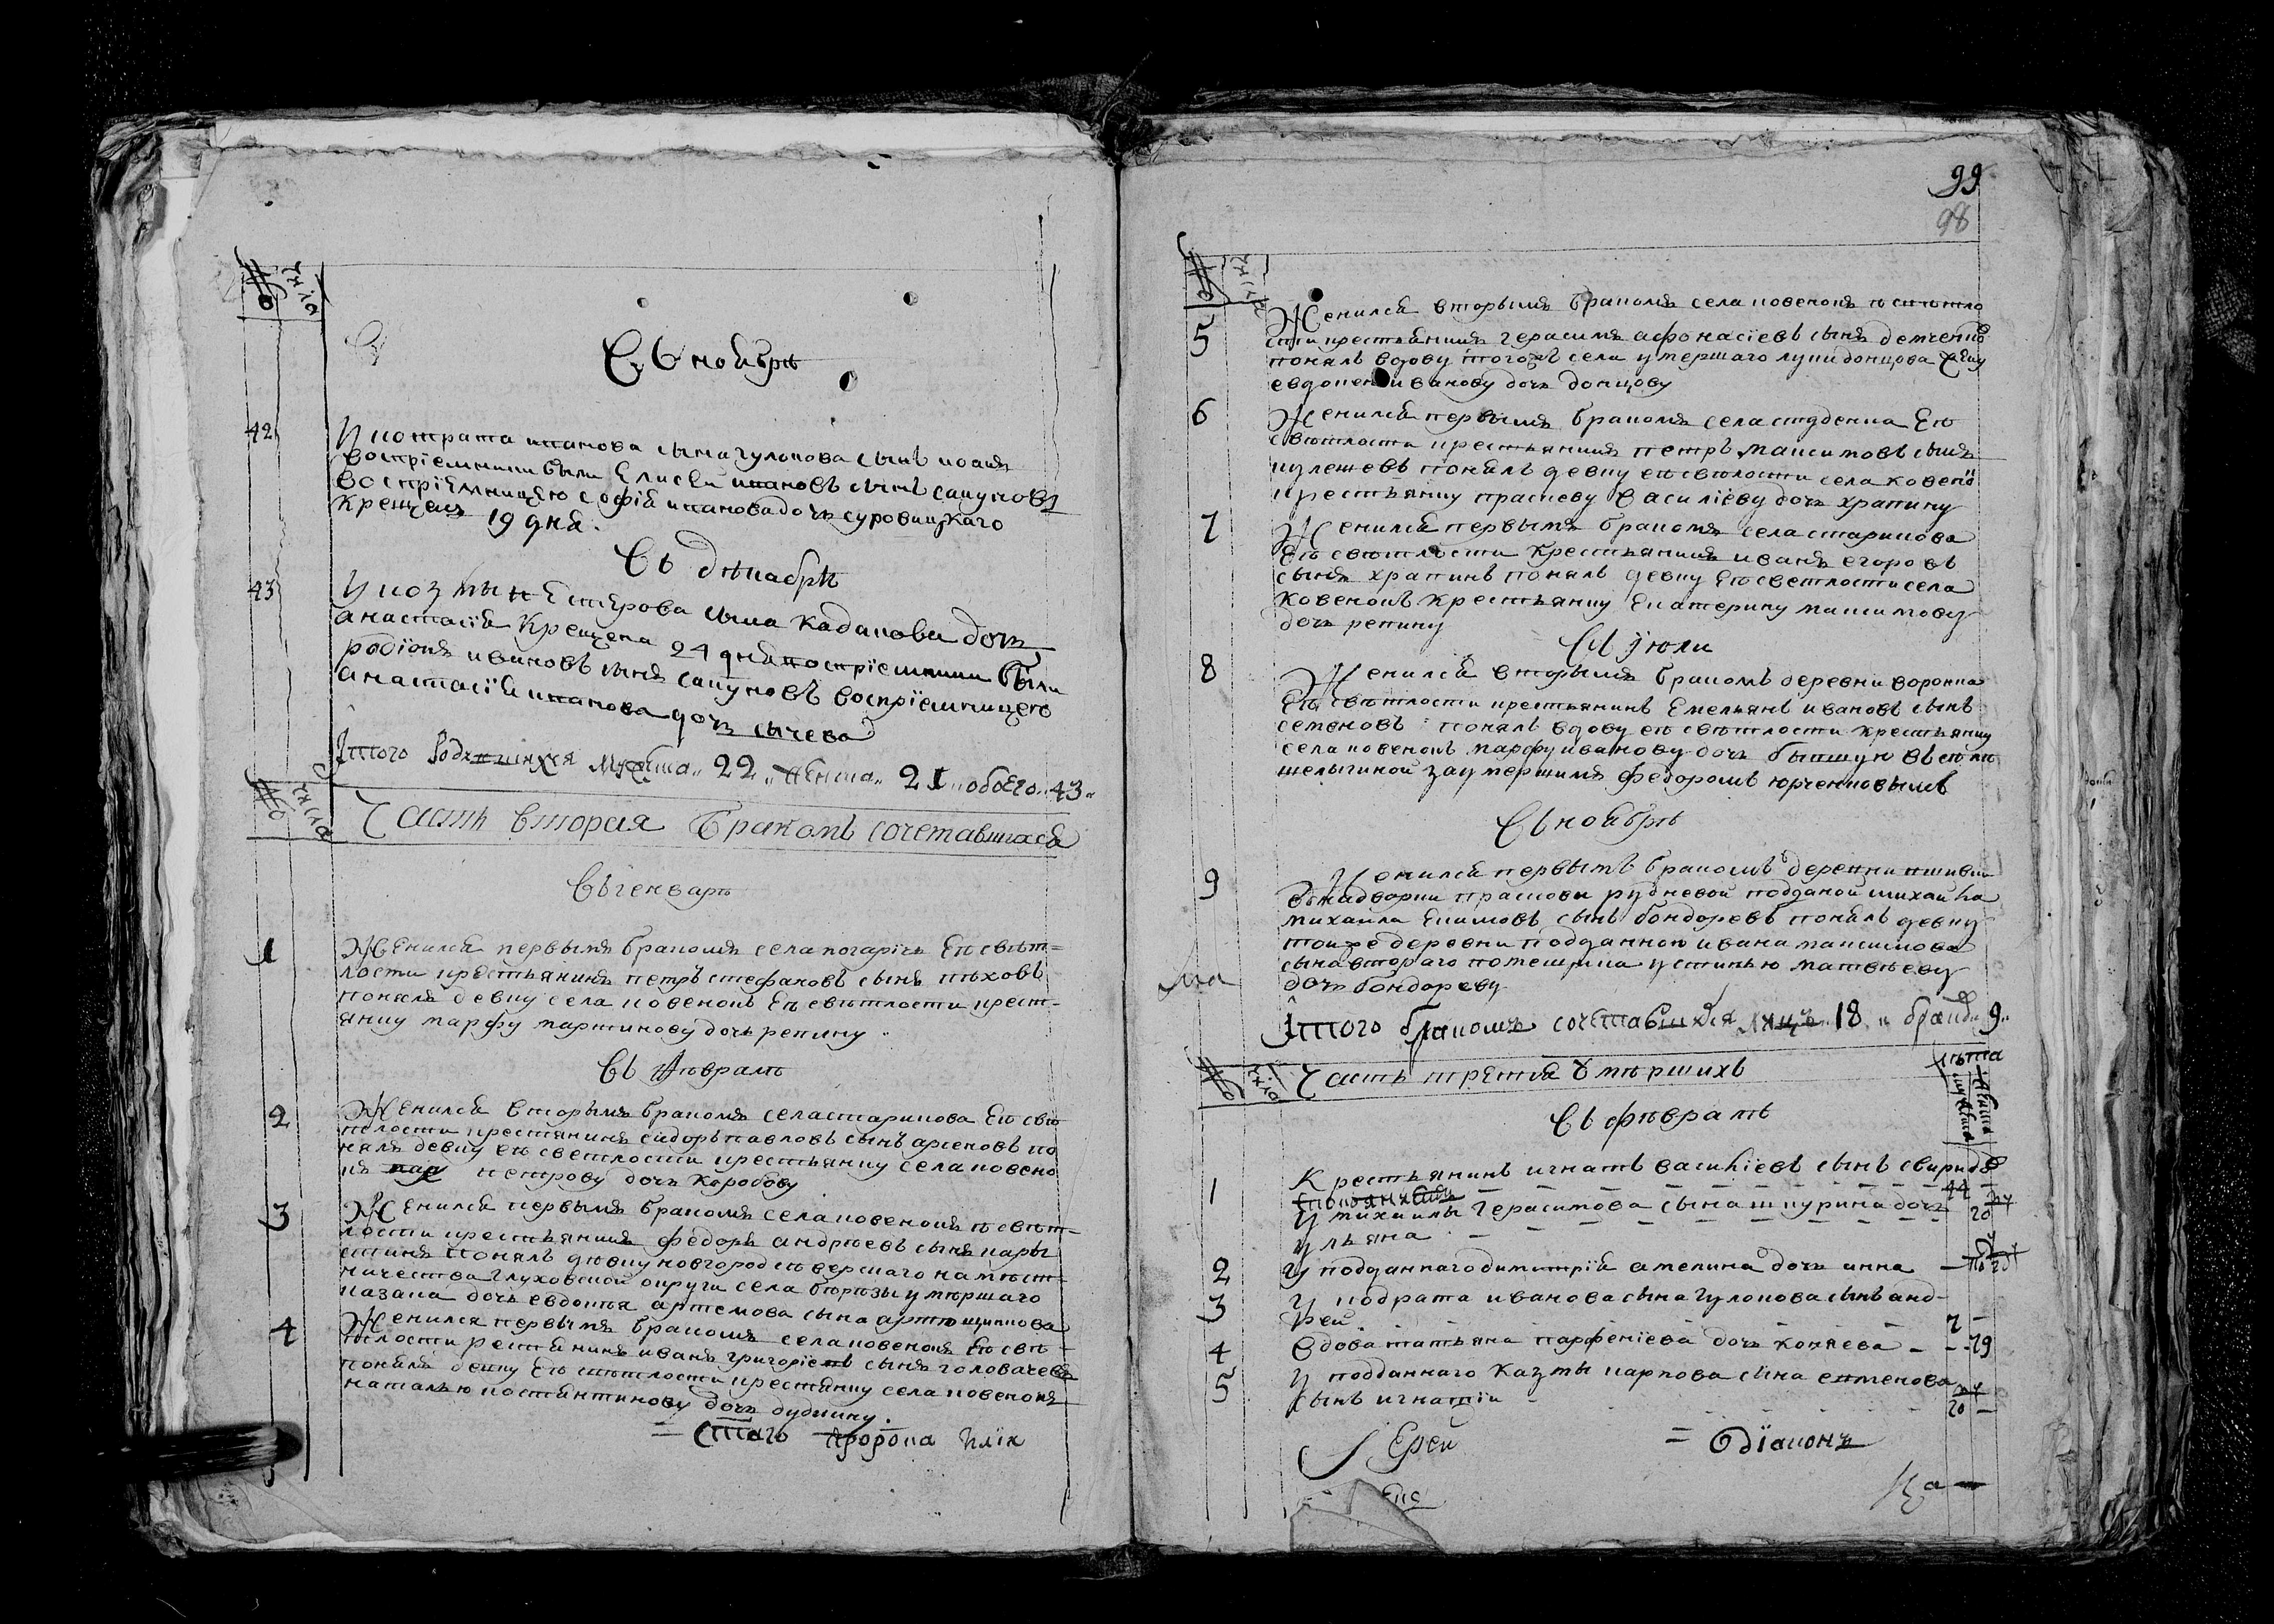 № числа
Въ ноябрѣ
42 У кондрата иванова сына гулокова сынъ иоанъ
воспріемники были Елисей ивановъ сынъ сапуновъ
воспріемницею софія иванова дочь суровицкаго
крещенъ 19 дня.
Въ декабрѣ
43 У козмы нестерова сына кадакова дочь
анастасія крещена 24 дня воспріемники были
родіонъ ивановъ сынъ сапуновъ воспріемницею
анастасія иванова дочь сычева
Итого родившихся мужеска 22 женска 21 обоего 43
№ числа Часть вторая бракомъ сочетавшася
Въ генварѣ
1 Женился первымъ бракомъ села погаричь ее свѣт-
лости крестьянинъ петръ стефановъ сынъ пѣховъ
понялъ девку села ковенокъ ее свѣтлости крест-
янку марфу мартинову дочь репину
Въ февралѣ
2 Женился вторымъ бракомъ села старикова ее свѣ
тлости крестянинъ сидоръ павловъ сынъ арсеновъ по
нялъ девку ее светлости крестьянку села ковено
къ петрову дочь коробову
3 Женился первымъ бракомъ села ковенокъ ее свѣт-
лости крестьянинъ федоръ андрѣевъ сынъ
понялъ дѣвку новгородсѣверскаго намѣст-
ничества глуховской округи села умѣршаго
казака дочь евдокія артемова сына
4 Женился первымъ бракомъ села ковенокъ ее свѣ-
тлости крестянинъ иванъ григоріевъ сынъ головачевъ
понялъ девку ее свѣтлости крестянку села ковенокъ
наталью костантинову дочь дудкину.
= стаго пророка иліи
99
98
№ числа
5 Женился вторымъ бракомъ села ковенокъ ее свѣтло
сти крестьянинъ герасимъ афонасіевъ сынъ демченко
понялъ вдову того жъ села умершаго луки донцова жену
евдокею иванову дочь донцову
6 Женился первымъ бракомъ села студенка ее
свѣтлости крестьянинъ петръ максимовъ сынъ
кулешевъ понялъ девку ее свѣтлости села ковенокъ
крестьянку прасковю василіеву дочь храпину
7 Женился первымъ бракомъ села старикова
ее свѣтлости крестьянинъ иванъ егоровъ
сынъ храпинъ понялъ девку ее светлости села
ковенокъ крестьянку екатерину максимову
дочь репину
Въ іюли
8 Женился вторымъ бракомъ деревни воронка
ее свѣтлости крестьянинъ емельянъ ивановъ сынъ
семеновъ понялъ вдову ее свѣтлости крестьянку
села ковенокъ марфу иванову дочь бывшую въ селѣ
шелыгиной за умершимъ федоромъ юрченковымъ
Въ ноябрѣ
9 Женился первымъ бракомъ деревни
рудневой подданой
михаила екимовъ сынъ бондоревъ понялъ девку
тоиже деревни подданною ивана максимова
сына втораго помещика устинью матвѣеву
дочь бондореву
Итого бракомъ сочетавшихся лицъ 18 браковъ 9
№ числа Часть третія умѣршихъ лѣта мужеска женска
Въ февралѣ
1 Крестьянинъ игнатъ василіевъ сынъ 44 —
У михаилы герасимова сына шпурина дочь 20
ульяна
2 У подданнаго димитрія амелина дочь анна
3 У кодрата иванова сына гулокова сынъ анд-
рей 2 —
4 Вдова татьяна парфеніева дочь коняева — 79
5 У подданнаго казмы карпова сина
сынъ игнатіи 20 —
Іерей = діаконъ